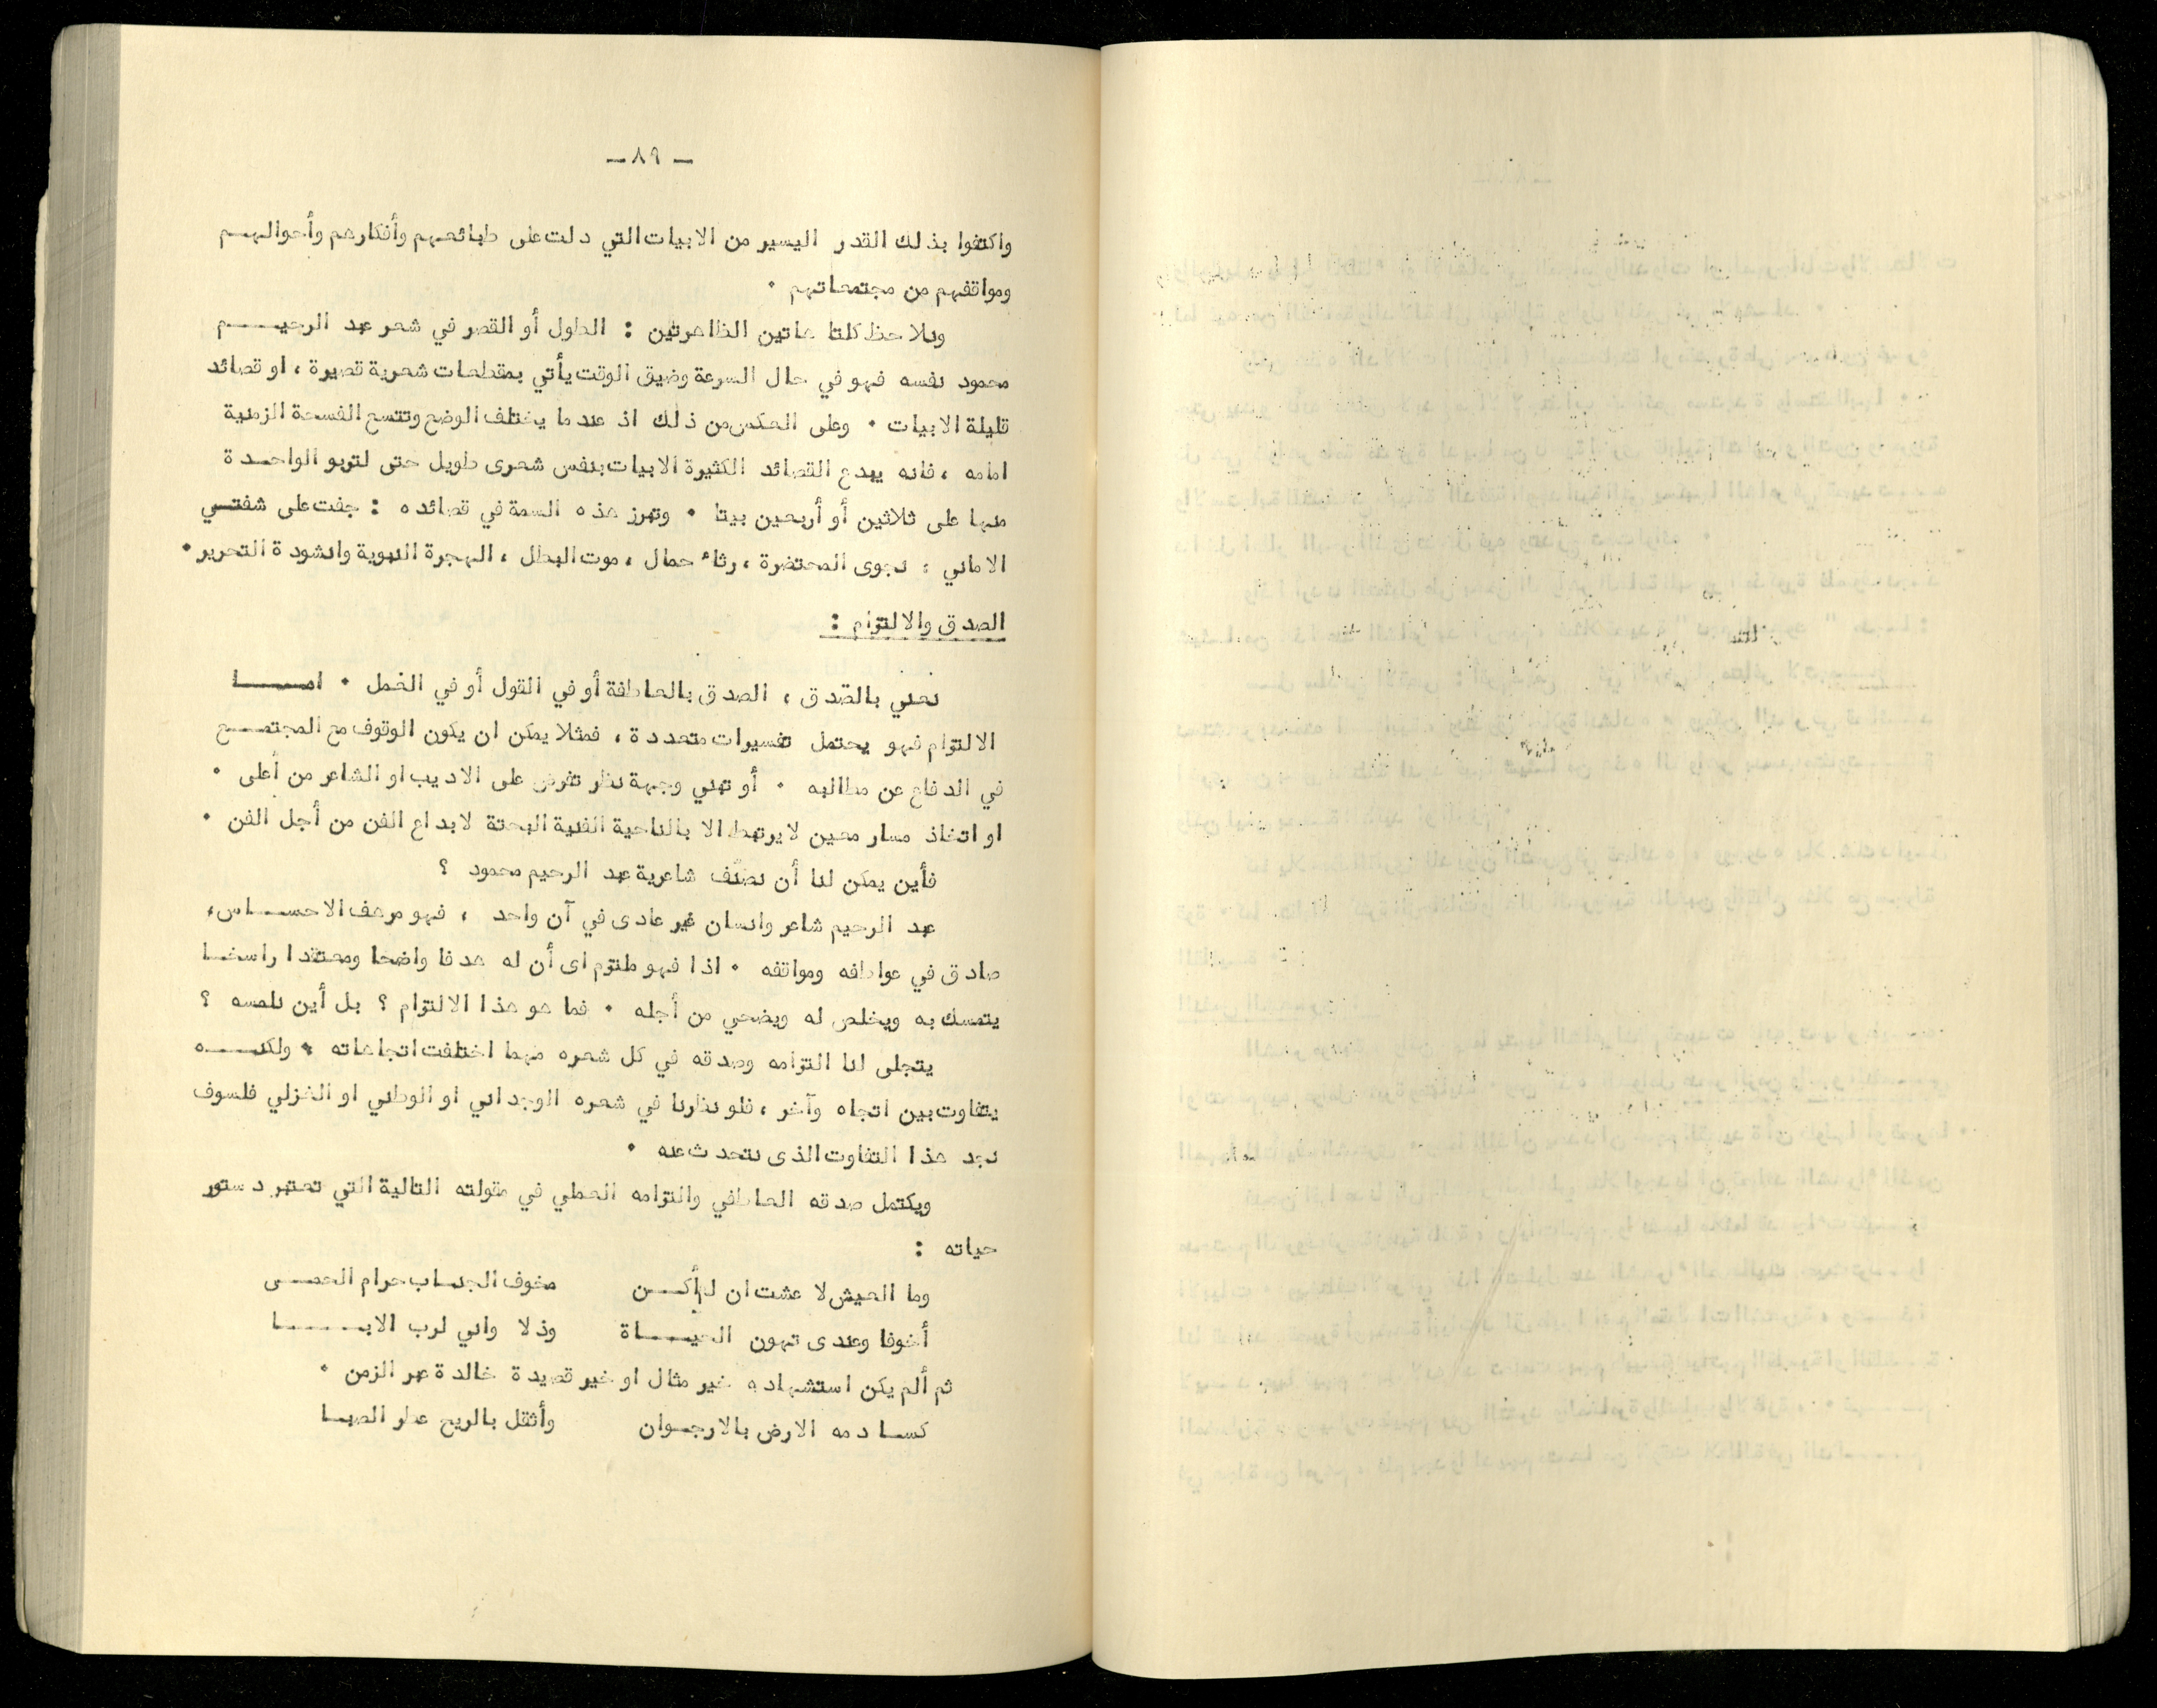 — ٨٩ —
واكتفوا بذلك القدر اليسير من الابيات التي دلت على طبائعهم وأفكارهم وأحوالهم
ومواقفهم من مجتمعاتهم .
ونلاحظ كلتا هاتين الظاهرتين : الطول أو القصر في شعر عبد الرحيم
محمود نفسه فهو في حال السرعة وضيق الوقت يأتي بمقطعات شعرية قصيرة ، او قصائد
قليلة الابيات . وعلى العكس من ذلك اذ عندما يختلف الوضع وتتسع الفسحة الزمنية
امامه ، فانه يبدع القصائد الكثيرة الابيات بنفس شعرى طويل حتى لتربو الواحدة
منها على ثلاثين أو أربعين بيتا . وتبرز هذه السمة في قصائده : جفت على شفتي
الاماني ، نجوى المحتضرة ، رثاء حمال ، موت البطل ، الهجرة النبوية وانشودة التحرير .
الصدق والالتزام :
نعني بالصدق ، الصدق بالعاطفة أو في القول أو في العمل . اما
الالتزام فهو يحتمل تفسيرات متعددة ، فمثلا يمكن ان يكون الوقوف مع المجتمع
في الدفاع عن مطالبه . أو تبني وجهة نظر تفرض على الاديب او الشاعر من أعلى .
او اتخاذ مسار معين لا يرتبط الا بالناحية الفنية البحتة لابداع الفن من أجل الفن .
فأين يمكن لنا أن نصنّف شاعرية عبد الرحيم محمود ؟
عبد الرحيم شاعر وانسان غير عادى في آن واحد ، فهو مرهف الاحساس ،
صادق في عواطفه ومواقفه . اذا فهو ملتزم اى أن له هدفا واضحا ومعتقدا راسخا
يتمسك به ويخلص له ويضحي من أجله . فما هو هذا الالتزام ؟ بل أين نلمسه ؟
يتجلى لنا التزامه وصدقه في كل شعره مهما اختلفت اتجاهاته . ولكنه
يتفاوت بين اتجاه وآخر ، فلو نظرنا في شعره الوجداني او الوطني او الغزلي فلسوف
نجد هذا التفاوت الذى نتحدث عنه .
ويكتمل صدقه العاطفي والتزامه العملي في مقولته التالية التي تعتبر دستور
حياته :
وما العيش لا عشت ان لم أكن مخوف الجناب حرام الحمى
أخوفا وعندى تهون الحياة وذلا واني لرب الابا
ثم ألم يكن استشهاده خير مثال او خير قصيدة خالدة عبر الزمن .
كسا دمه الارض بالارجوان وأثقل بالريح عطر الصبا